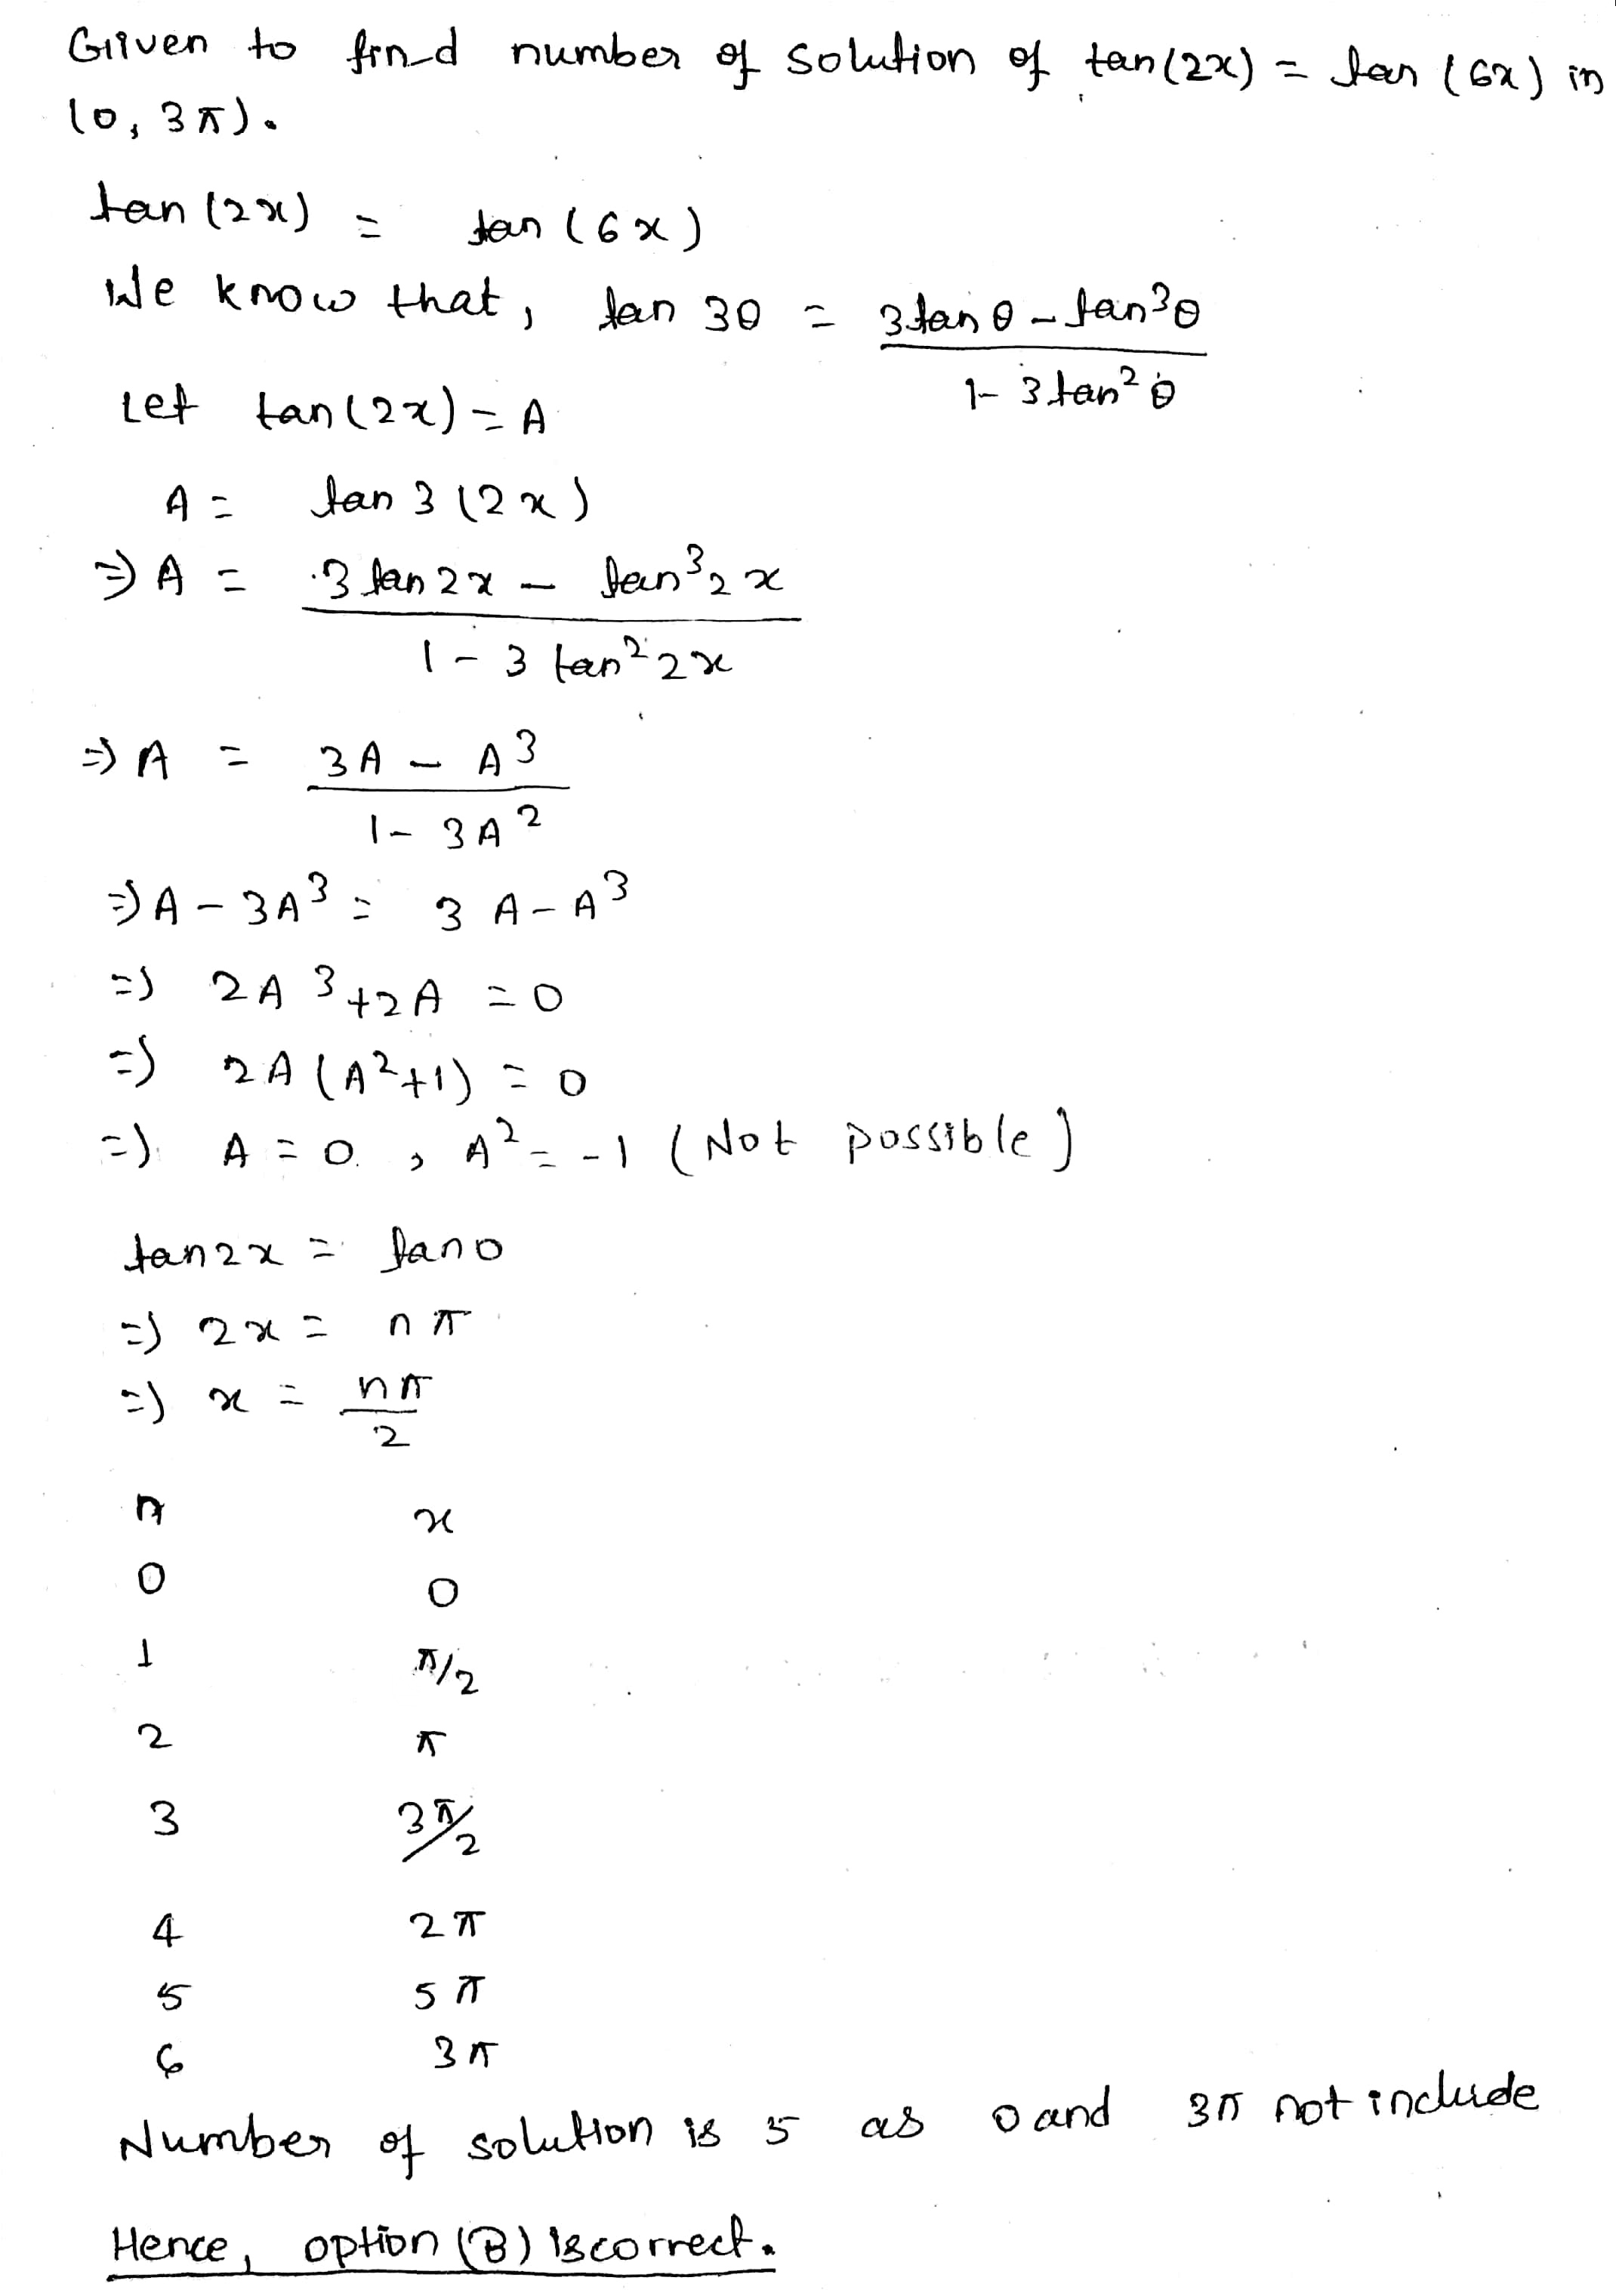 Given to find number of solution of tan(2x) = tan (6x) in
(0, 3π).
tan (2x) = tan (6x)
We know that, tan 3θ = 3tanθ - tan³θ
1- 3tan²θ
Let tan(2x) = A
A = tan 3 (2x)
⇒ A = 3 tan 2x - tan³2x
1 - 3 tan²2x
⇒ A = 3A - A³
1 - 3A²
⇒ A - 3A³ = 3 A - A³
⇒ 2A³ +2A = 0
⇒ 2A (A²+1) = 0
⇒ A = 0 , A² = -1 (Not possible)
tan2x = tan0
⇒ 2x = nπ
⇒ x = nπ
2
n x
0 0
1 π/2
2 π
3 3π/2
4 2π
5 5π
6 3π
Number of solution is 5 as 0 and 3π not include
Hence, option (B) is correct.